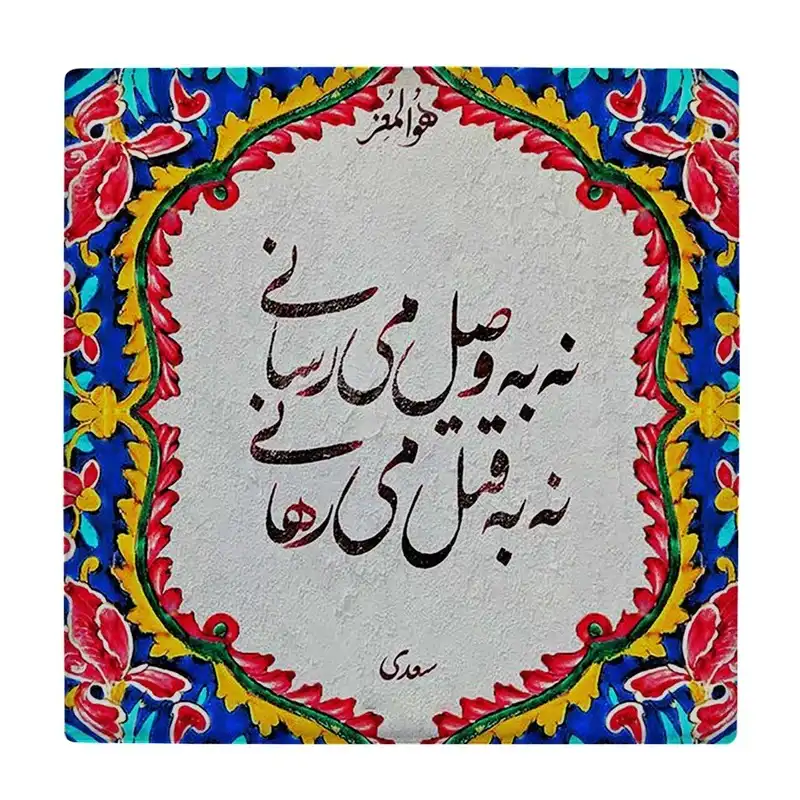 هُوَالمُعِز
نه به وصل می رسانی
نه به قتل می رهانی
سعدی